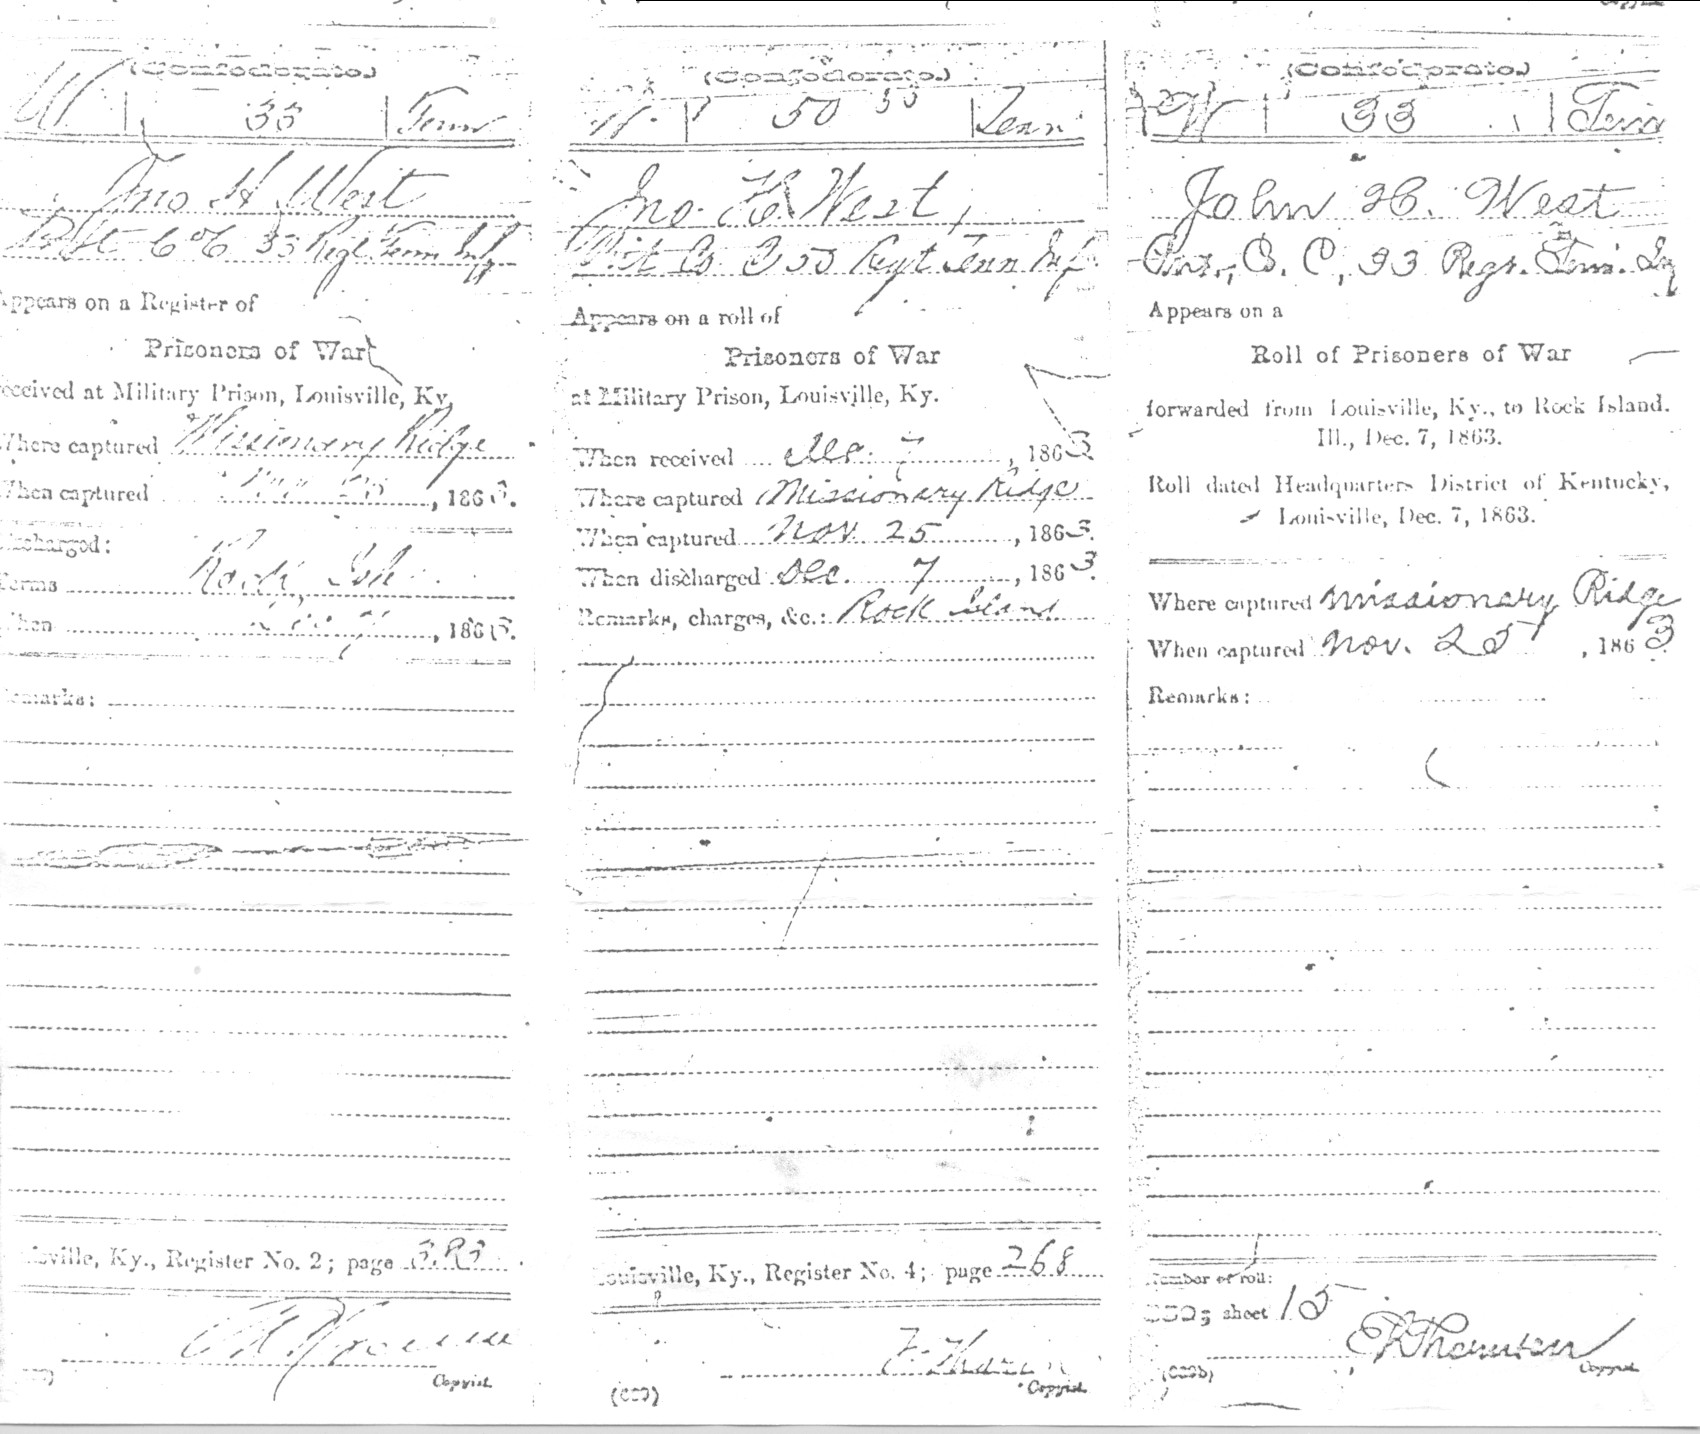 (Confederate.)
W 33 Tenn
Jno H West
Pvt Co C 33 Regt Tenn Inf
Appears on a Register of
Prisoners of War
received at Military Prison, Louisville, Ky.
Where captured Missionary Ridge
When captured Nov 25, 1863.
Discharged:
Terms Rock Isl
When Dec 7, 1863.
Remarks:
Louisville, Ky., Register No. 2; page
Copyist.
(Confederate.)
W. 50 33 Tenn
Jno. H. West,
Pvt Co C 33 Regt Tenn Inf.
Appears on a roll of
Prisoners of War
at Military Prison, Louisville, Ky.
When received Dec. 7, 1863
Where captured Missionary Ridge
When captured Nov. 25, 1863.
When discharged Dec. 7, 1863.
Remarks, charges, &c.: Rock Island
Louisville, Ky., Register No. 4; page 268
Copyist.
(Confederate.)
W 33 Tenn
John H. West
Pvt., Co. C, 33 Regt. Tenn. Inf
Appears on a
Roll of Prisoners of War
forwarded from Louisville, Ky., to Rock Island.
Ill., Dec. 7, 1863.
Roll dated Headquarters District of Kentucky,
Louisville, Dec. 7, 1863.
Where captured Missionary Ridge
When captured Nov. 25, 1863
Remarks:
Number of roll:
sheet 15
Copyist.